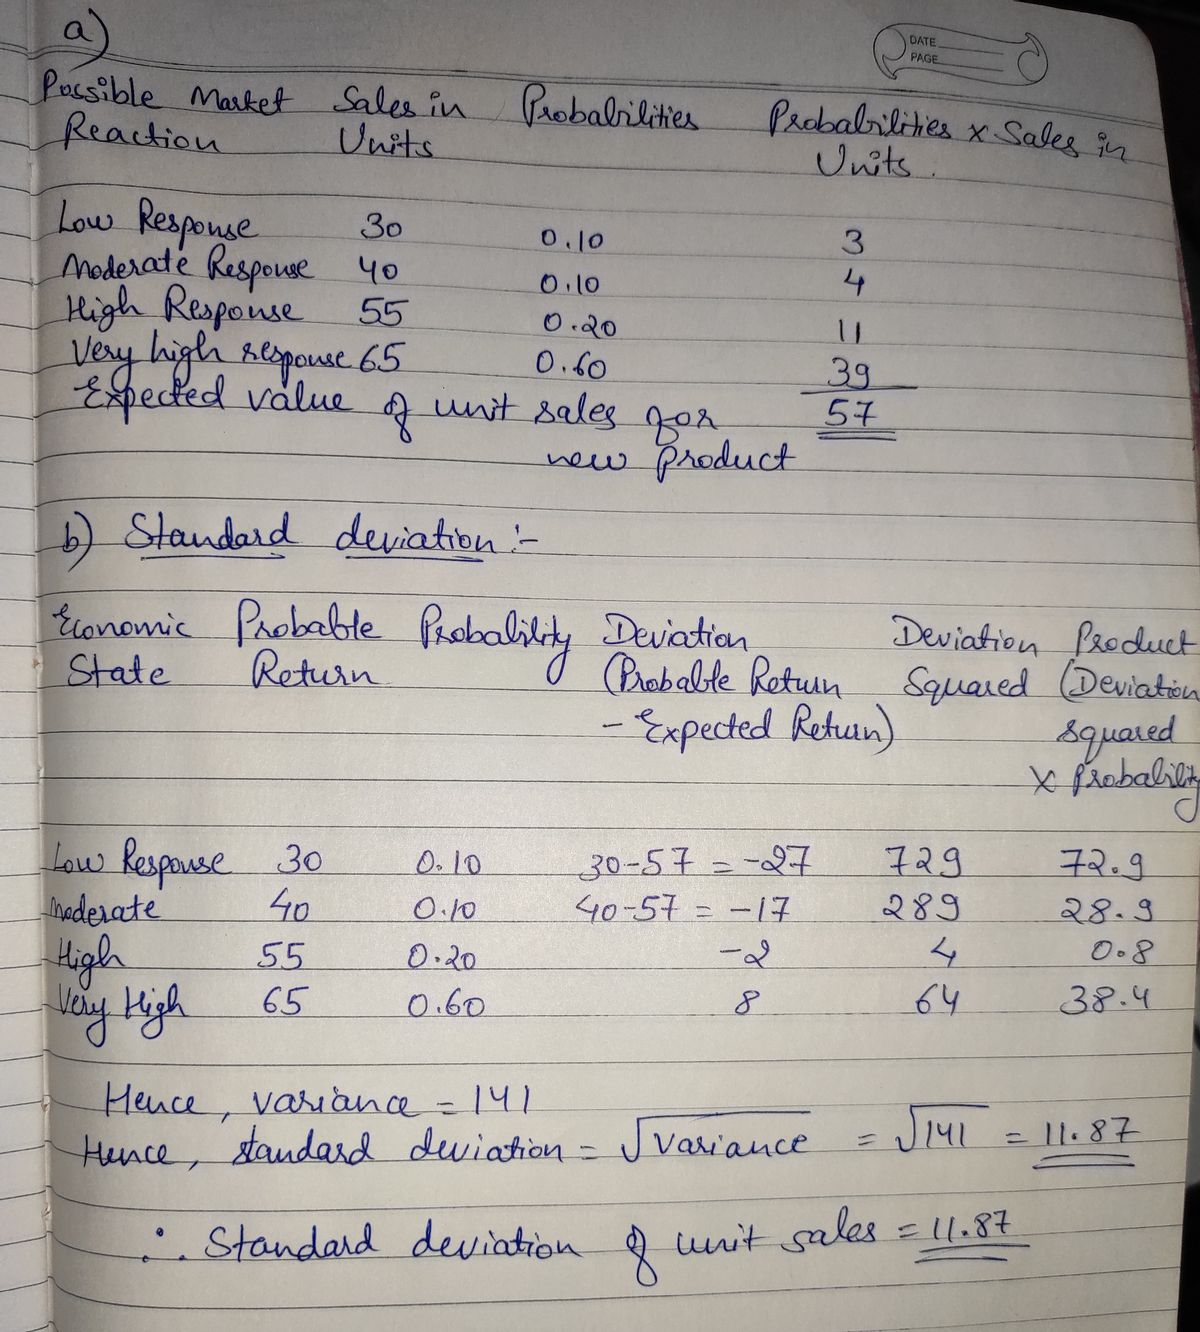 a)
DATE
PAGE
Possible Market Sales in Probabilities Probabilities x Sales in
Reaction Units Units.
Low Response 30 0.10 3
Moderate Response 40 0.10 4
High Response 55 0.20 11
Very high response 65 0.60 39
Expected value of unit sales for 57
new product
b) Standard deviation :-
Economic Probable Probability Deviation Deviation Product
State Return (Probable Return Squared (Deviation
- Expected Return) squared
x Probability
Low Response 30 0.10 30-57 = -27 729 72.9
Moderate 40 0.10 40-57 = -17 289 28.9
High 55 0.20 -2 4 0.8
Very High 65 0.60 8 64 38.4
Hence, variance = 141
Hence, standard deviation = √Variance = √141 = 11.87
∴ Standard deviation of unit sales = 11.87